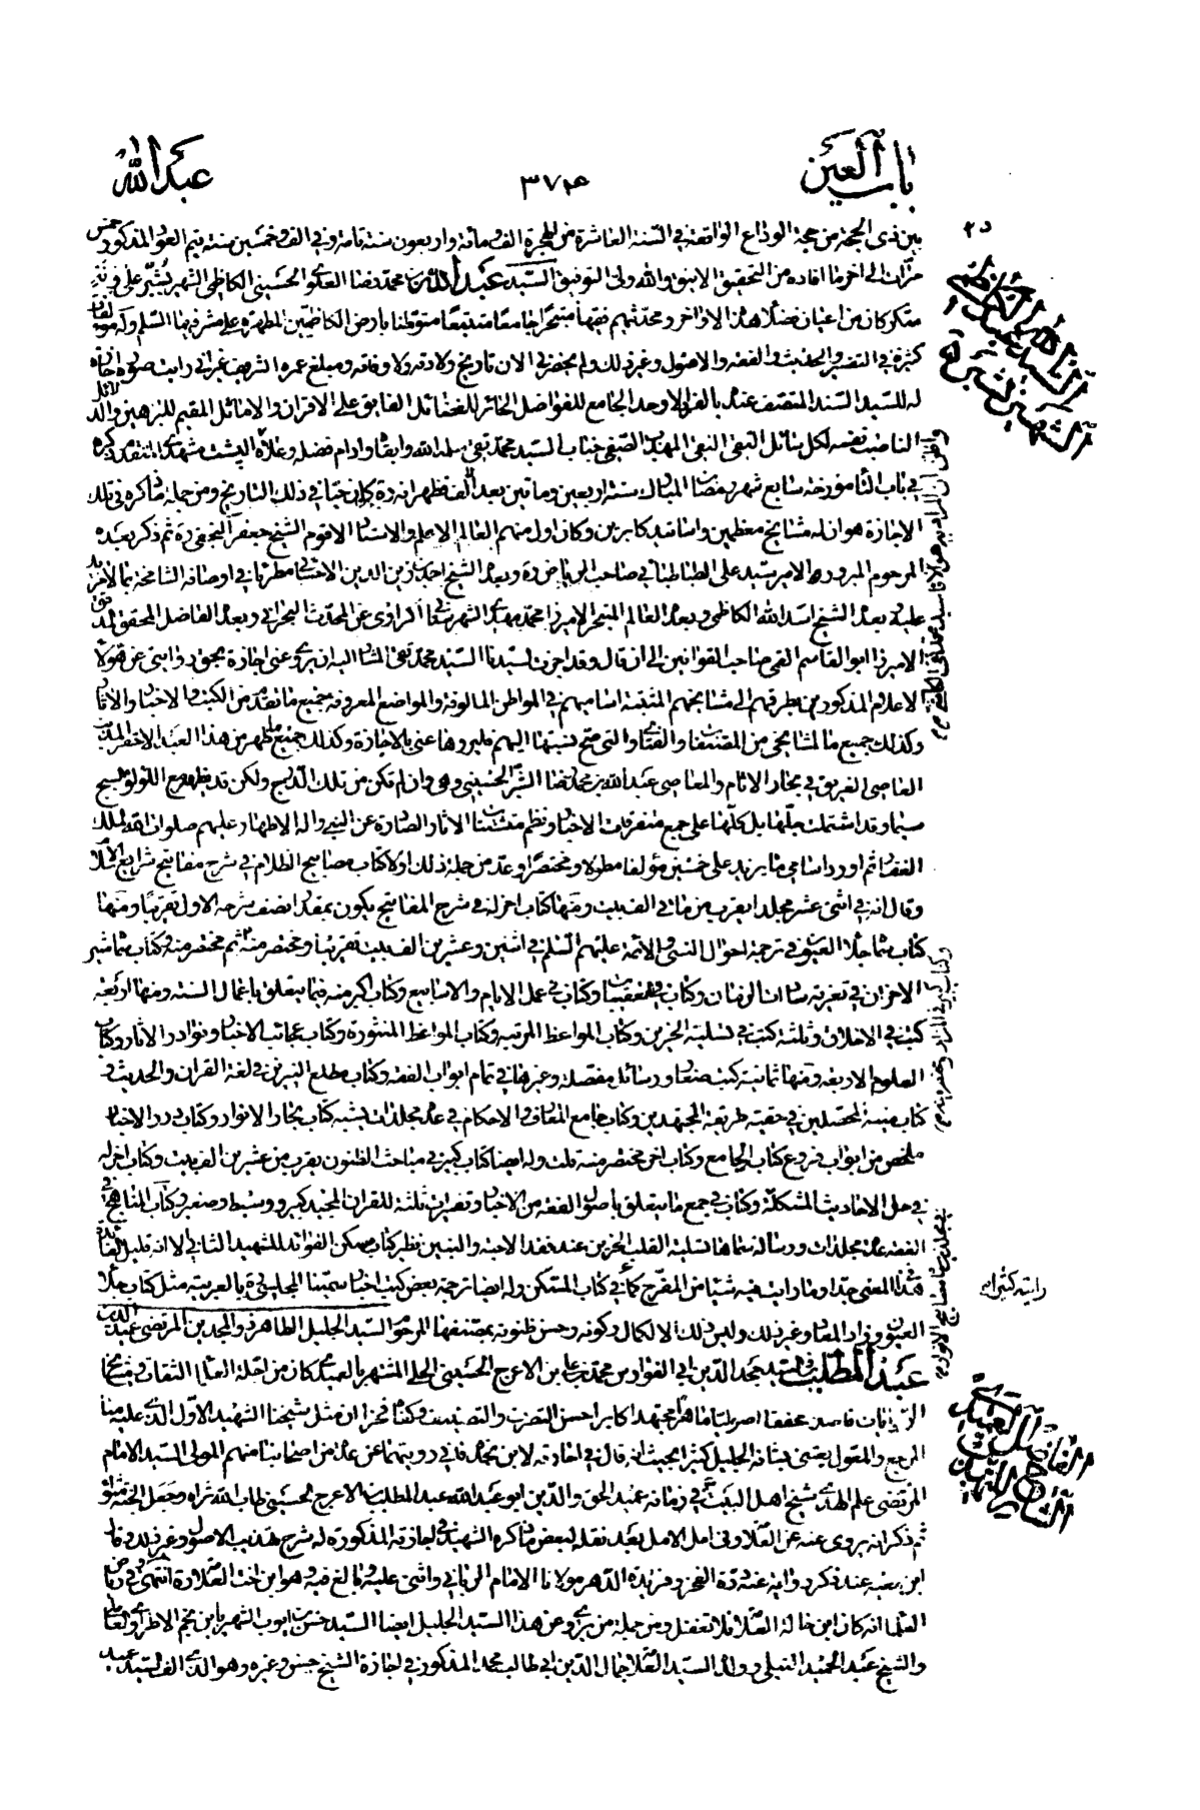 باب العين
٣٧٤
عبد الله
من ذى الحجة من حجة الوداع الواقعة في السنة العاشرة من الهجرة الف ومائة واربعون سنة تامة وفي الف وخمسين سنة يتم العود المذكور خمس
مرّات الى اخر ما افاده من التحقيق الانيق والله ولى التوفيق السيد عبد الله بن محمد رضا العلوى الحسينى الكاظمى الشهير بشبّر على وزن
سكر كان من اعيان فضلاء هذا الاواخر ومحدثيهم فقيها متبحرا جامعا متتبعا متوطنا بارض الكاظمين المطهرة على مشرفيها السلم وله مؤلفات
كثيرة في التفسير والحديث والفقه والاصول وغير ذلك ولم يحضرنى الان تاريخ ولادته ولا وفاته ومبلغ عمره الشريف غير انى رايت صورة اجازة
له للسيد السند المتصف عنده بالفرد الاوحد الجامع للفواضل الحائز للفضائل الفايق على الاقران والاماثل المقيم للبراهين والدلائل
الناصب نفسه لكل سائل التقى النقى المهذب الصفى جناب السيد محمد تقى سلمه الله وابقاه وادام فضله وعلاه
مورخة سابع شهر رمضان المبارك سنة اربعين وماتين بعد الف فظهر انه ره كان حيا في ذلك التاريخ ومن جملة ما ذكره في تلك
الاجازة هو ان له مشايخ معظمين واساتيد كابرين وكان اولهم العالم الاعلم والاستاد الاقوم الشيخ جعفر النجفى ره ثم ذكر بعده
المرحوم المبرور الامير سيد على الطباطبائى صاحب الرياض ره وبعده الشيخ احمد بن زين الدين الاحسائى مطريا في اوصافه الشامخة بما لا مزيد
عليه وبعده الشيخ اسد الله الكاظمى وبعده العالم المتبحر الاميرزا محمد مهدى الشهرستانى الراوى عن المحدث البحرانى وبعده الفاضل المحقق المدقق
الاميرزا ابو القاسم القمى صاحب القوانين الى ان قال وقد اجزت لسيدنا السيد محمد تقى المشار اليه ان يروى عنى اجازة بحق روايتى عن هؤلاء
الاعلام المذكورين بطرقهم الى مشايخهم المثبتة اساميهم في المواطن المالوفة والمواضع المعروفة جميع ما تقدم من الكتب والاخبار والاثار
وكذلك جميع ما لمشايخى من المصنفات والفتاوى التى صح نسبتها اليهم فليروها عنى بالاجازة وكذلك جميع ما ظهر من هذا العبد الاحقر المذنب
العاصى الغريق في بحار الاثام والمعاصى عبد الله بن محمد رضا الشبّر الحسينى وهى وان لم تكن من تلك ولكن قد ينظم مع اللؤلؤ السبج
سيما وقد اشتملت جلّها بل كلّها على جمع متفرقات الاخبار ونظم متشتتات الاثار الصادرة عن النبى واله الاطهار عليهم صلوات الله الملك
الغفار ثم اورد اسامى ما يزيد على خمسين مؤلفا مطولا ومختصرا وعد من جملة ذلك اولا كتاب مصابيح الظلام في شرح مفاتيح شرايع الاسلام
وقال انه في اثنى عشر مجلدا يقرب من مائى الف بيت ومنها كتاب اخر له في شرح المفاتيح يكون بمقدار نصف شرحه الاول تقريبا ومنها
كتاب سماه جلاء العيون في ترجمة احوال النبى والائمة عليهم السلم في اثنين وعشرين الف بيت تقريبا ومختصر منه ثم مختصر منه وكتاب سماه مثير
الاحزان في تعزية سادات الزمان وكتاب في التعقيبات وكتاب في عمل الايام والاسابيع وكتاب اكبر منه فيما يتعلق باعمال السنة ومنها اربعة
كتب في الاخلاق وثلثة كتب في تسلية الحزين وكتاب المواعظ المرتبة وكتاب المواعظ المنثورة وكتاب عجائب الاخبار ونوادر الاثار وكتاب
العلوم الاربعة ومنها ثمانية كتب صغار ورسائل مفصلة وغيرها في تمام ابواب الفقه وكتاب مطلع النيرين في لغة القران والحديث و
كتاب منية المحصلين في حقية طريقة المجتهدين وكتاب جامع المعارف والاحكام في عدة مجلدات يشبه كتاب بحار الانوار وكتاب درر الاخبار
ملخص من ابواب فروع كتاب الجامع وكتاب اخر مختصر منه ثلث وله ايضا كتاب كبير في مباحث الظنون يقرب من عشرين الف بيت وكتاب اخر له
في حل الاحاديث المشكلة وكتاب في جمع ما يتعلق باصول الفقه من الاخبار وتفسيرات ثلثة للقران المجيد كبير ووسيط وصغير وكتاب المناهج في
الفقه عدة مجلدات ورسالة سماها تسلية القلب الحزين عند فقد الاحبة والبنين نظير كتاب مسكن الفؤاد للشهيد الثانى الا انه قليل الفائدة
في هذا المعنى جدا وما رايت فيه شيئا من المفرح كما في كتاب المسكن وله ايضا ترجمة بعض كتب سمينا المجلسى ره بالعربية مثل كتاب جلاء
العيون وزاد المعاد وغير ذلك وليس ذلك الا لكمال ركونه وحسن ظنونه بمصنفها المرحوم السيد الجليل الطاهر ذو المجدين المرتضى عميد الدين
عبد المطلب بن السيد مجد الدين ابى الفوارس محمد بن على بن الاعرج الحسينى الحلى المشتهر بالعميدى كان من اجلة العلماء الثقات ومشايخ
الروايات فاضلا محققا اصوليا ماهرا مجتهدا كابرا حسن التصرف والتصنيف وكفاه فخرا ان مثل شيخنا الشهيد الاول الذى عليه منا
المرجع والمعول يعتنى بشانه الجليل كثيرا بحيث انه قال في اجازته لابن نجدة فانى رويتها عن عدة من اصحابنا منهم المولى السيد الامام
المرتضى علم الهدى شيخ اهل البيت في زمانه عميد الحق والدين ابو عبد الله عبد المطلب بن الاعرج الحسينى طاب الله ثراه وجعل الجنة مثواه
ثم ذكر انه يروى عنه عن العلامة وفي امل الامل بعد نقله لبعض ما ذكره الشهيد في اجازته المذكورة له شرح تهذيب الاصول وغير ذلك وقال
ابن معية عند ذكر روايته عنه درة الفخر وفريدة الدهر مولانا الامام الربانى واثنى عليه وبالغ فيه وهو ابن اخت العلامة انتهى وفي رياض
العلماء انه كان ابن خالة العلامة فلا تغفل ومن جملة من يروى عن هذا السيد الجليل ايضا السيد حسن بن ايوب الشهير بابن نجم الاطراوى العاملى
والشيخ عبد الحميد النيلى وولد السيد العلامة جمال الدين ابى طالب محمد المذكور في اجازة الشيخ حسن وغيره وهو الذى الف السيد عميد